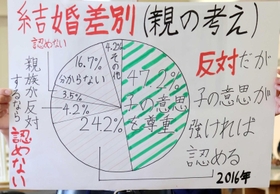 結婚差別(親の考え)
認めない
4.2%
その他
16.7%
分からない
47.2%
子の意思
を尊重
3.5%
4.2%
24.2%
反対だが
子の意思が
強ければ
認める
親族が反対
するなら
認めない
2016年